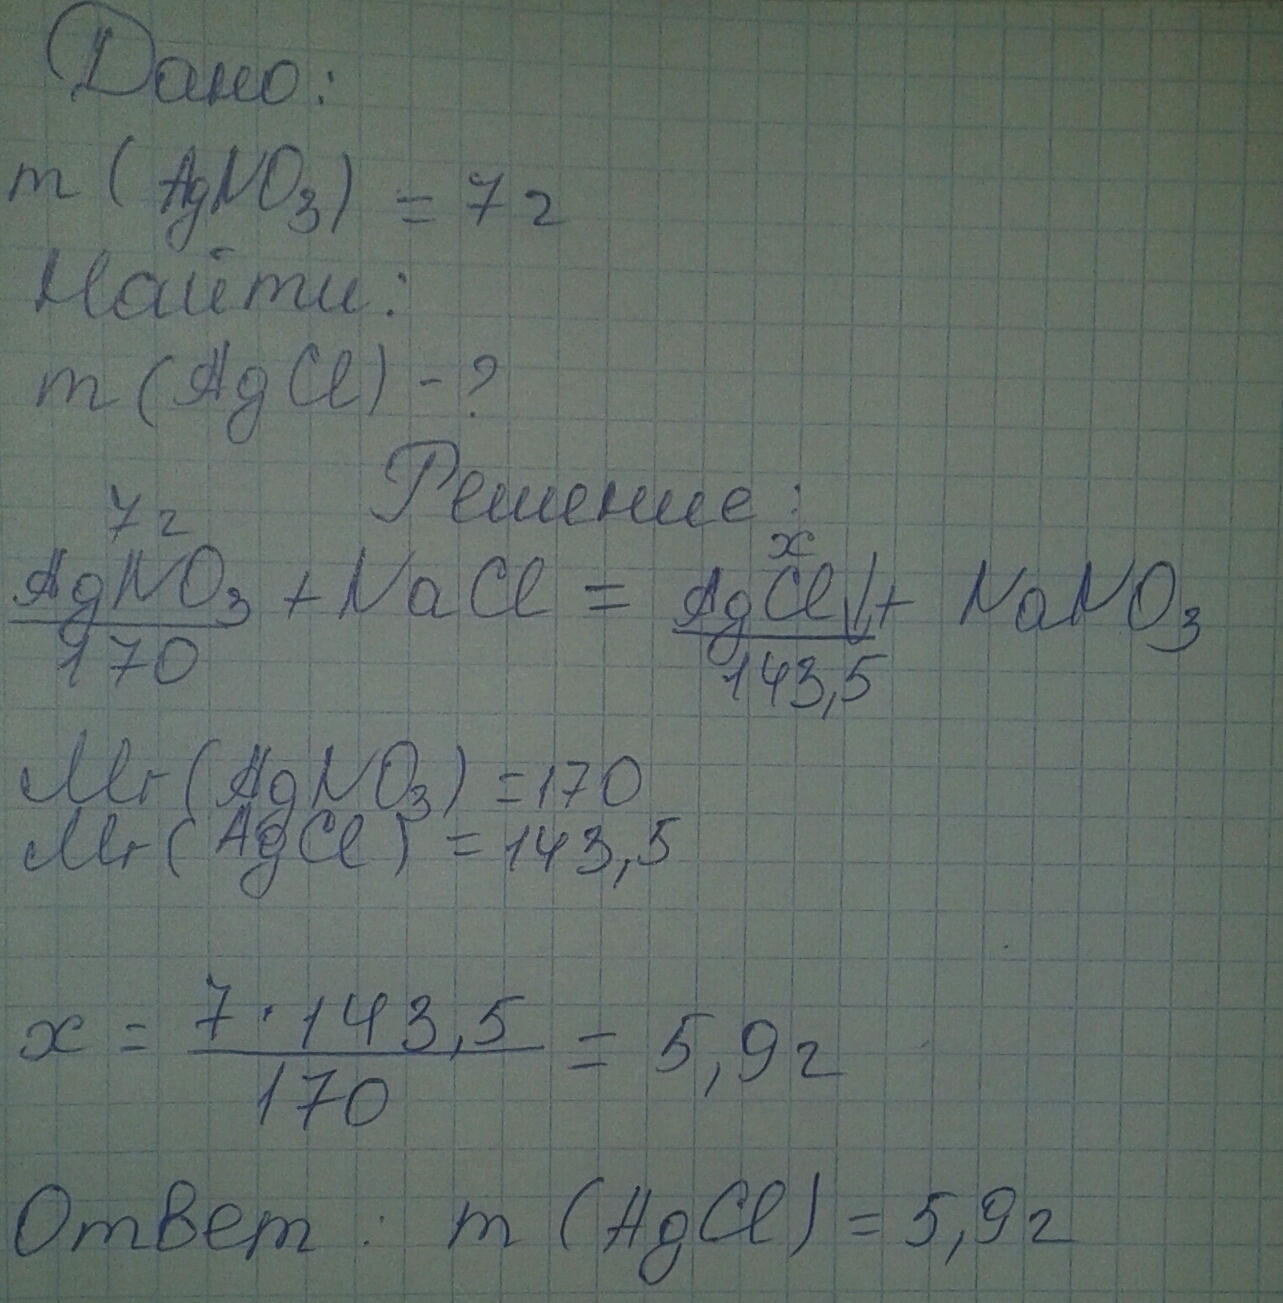 Дано:
m (AgNO₃) = 7 г
Найти:
m (AgCl) - ?
Решение:
7 г x
AgNO₃ + NaCl = AgCl↓ + NaNO₃
170 143,5
Mr (AgNO₃) = 170
Mr (AgCl) = 143,5
x = 7 · 143,5 / 170 = 5,9 г
Ответ: m (AgCl) = 5,9 г